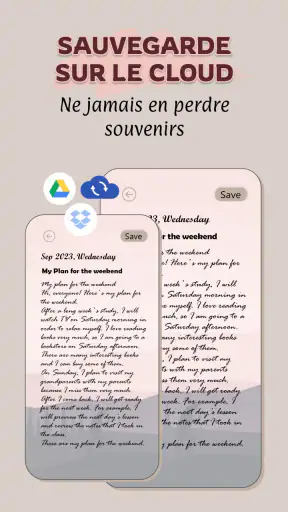 SAUVEGARDE
SUR LE CLOUD
Ne jamais en perdre
souvenirs
Save
3, Wednesday
r the weekend
he weekend
e! Here's my plan for
week's study, I will
n Saturday morning in
e myself. I love reading
ch, so I am going to a
Saturday afternoon.
any interesting books
y some of them.
I plan to visit my
ts with my parents
ss them very much.
back, I will get ready
week. For example, I
the next day's lesson
the notes that I took
y plan for the weekend.
Save
Sep 2023, Wednesday
My Plan for the weekend
My plan for the weekend
Hi, everyone! Here's my plan for
the weekend.
After a long week's study, I will
watch TV on Saturday morning in
order to relax myself. I love reading
books very much, so I am going to a
bookstore on Saturday afternoon.
There are many interesting books
and I can buy some of them.
On Sunday, I plan to visit my
grandparents with my parents
because I miss them very much.
After I come back, I will get ready
for the next week. For example, I
will preview the next day's lesson
and review the notes that I took in
the class.
These are my plan for the weekend.